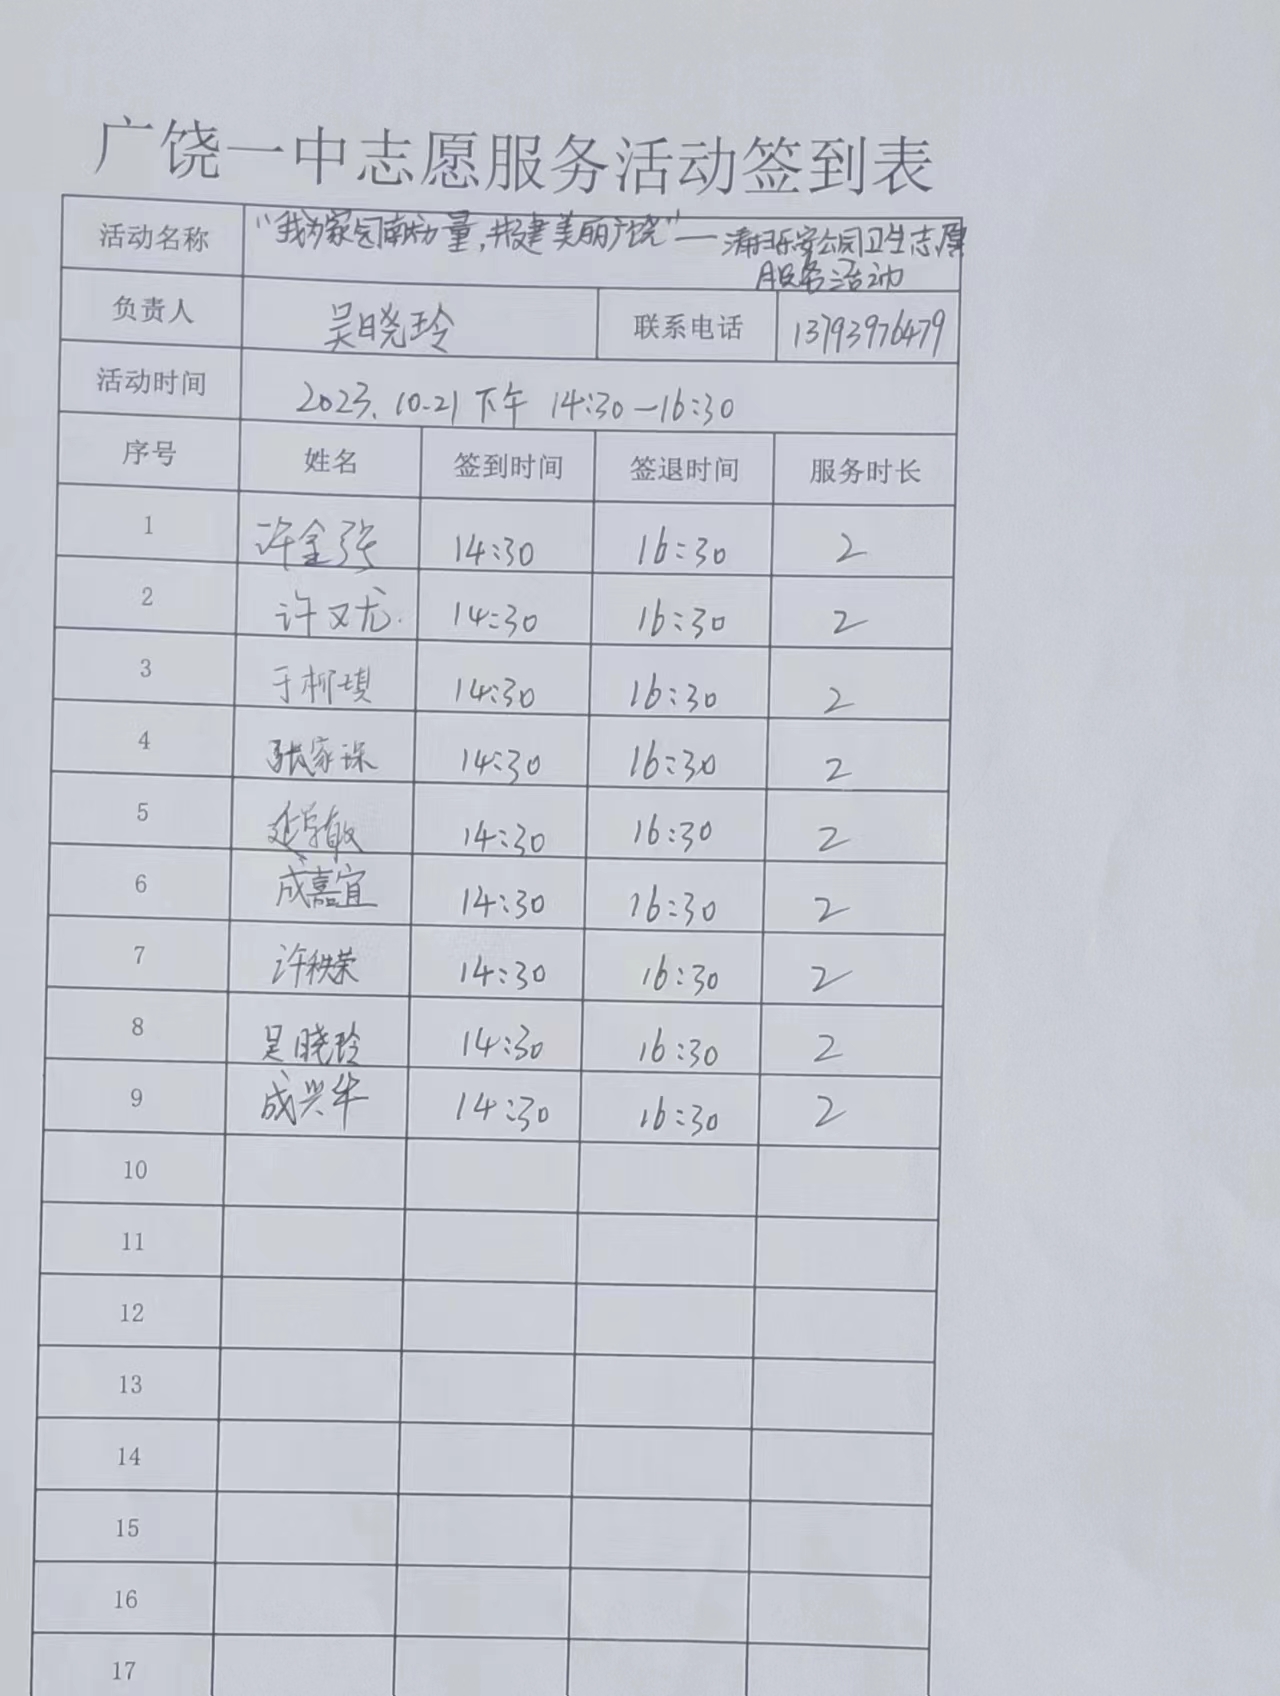 广饶一中志愿服务活动签到表
活动名称 "我为家园献力量,共建美丽广饶"—清扫乐安公园卫生志愿
服务活动
负责人 吴晓玲 联系电话 13793976479
活动时间 2023.10.21 下午 14:30—16:30
序号 姓名 签到时间 签退时间 服务时长
1 许金强 14:30 16:30 2
2 许又尤 14:30 16:30 2
3 于柳琪 14:30 16:30 2
4 张家琛 14:30 16:30 2
5 延学敏 14:30 16:30 2
6 成嘉宜 14:30 16:30 2
7 许秩荣 14:30 16:30 2
8 吴晓玲 14:30 16:30 2
9 成兴华 14:30 16:30 2
10
11
12
13
14
15
16
17